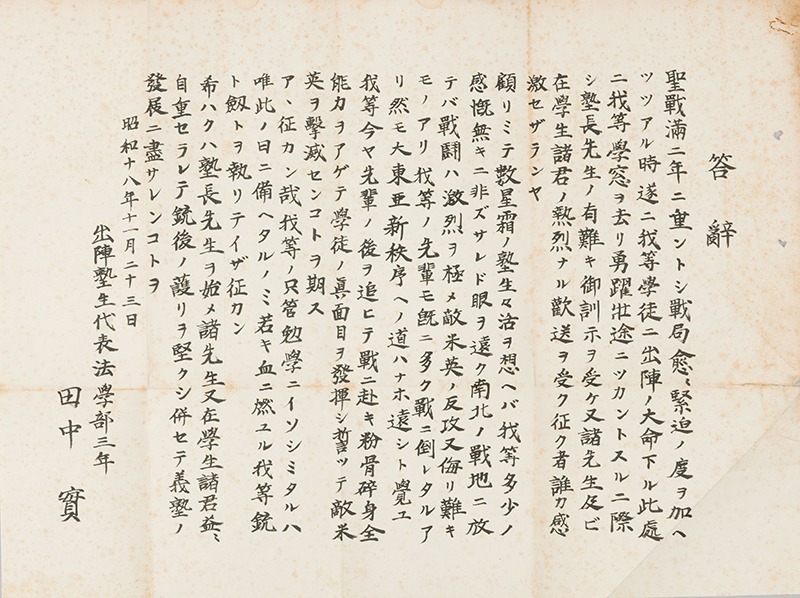 答辭
聖戰滿二年ニ重ントシ戰局愈〻緊迫ノ度ヲ加ヘ
ツツアル時遂ニ我等學徒ニ出陣ノ大命下ル此處
ニ我等學窓ヲ去リ勇躍壮途ニツカントスルニ際
シ塾長先生ノ有難キ御訓示ヲ受ケ又諸先生及ビ
在學生諸君ノ熱烈ナル歡送ヲ受ク征ク者誰カ感
激セザランヤ
顧リミテ數星霜ノ塾生々活ヲ想ヘバ我等多少ノ
感慨無キニ非ズサレド眼ヲ遠ク南北ノ戰地ニ放
テバ戰鬪ハ激烈ヲ極メ敵米英ノ反攻又侮リ難キ
モノアリ我等ノ先輩モ旣ニ多ク戰ニ倒レタルア
リ然モ大東亜新秩序ヘノ道ハナホ遠シト覺ユ
我等今ヤ先輩ノ後ヲ追ヒテ戰ニ赴キ粉骨碎身全
能力ヲアゲテ學徒ノ眞面目ヲ發揮シ誓ッテ敵米
英ヲ擊滅センコトヲ期ス
ア、征カン哉我等ノ只管勉學ニイソシミタルハ
唯此ノ日ニ備ヘタルノミ若キ血ニ燃ユル我等銃
ト劔トヲ執リテイザ征カン
希ハクハ塾長先生ヲ始メ諸先生又在學生諸君益〻
自重セラレテ銃後ノ護リヲ堅クシ併セテ義塾ノ
發展ニ盡サレンコトヲ
昭和十八年十一月二十三日
出陣塾生代表法學部三年
田中實